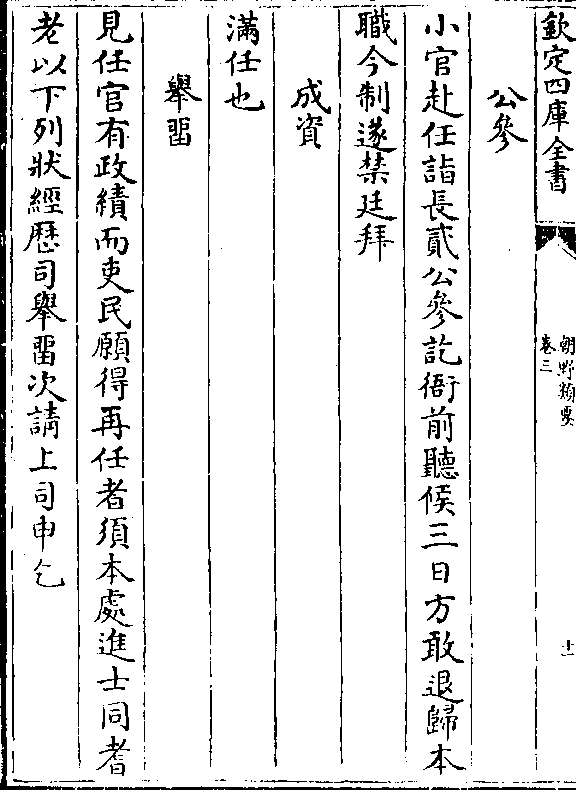 欽定四庫全書
朝野類要
卷三
十一
公參
小官赴任詣長貳公參訖衙前聽候三日方敢退歸本
職今制遂禁廷拜
成資
滿任也
舉畱
見任官有政績而吏民願得再任者須本處進士同耆
老以下列狀經歴司舉畱次請上司申乞